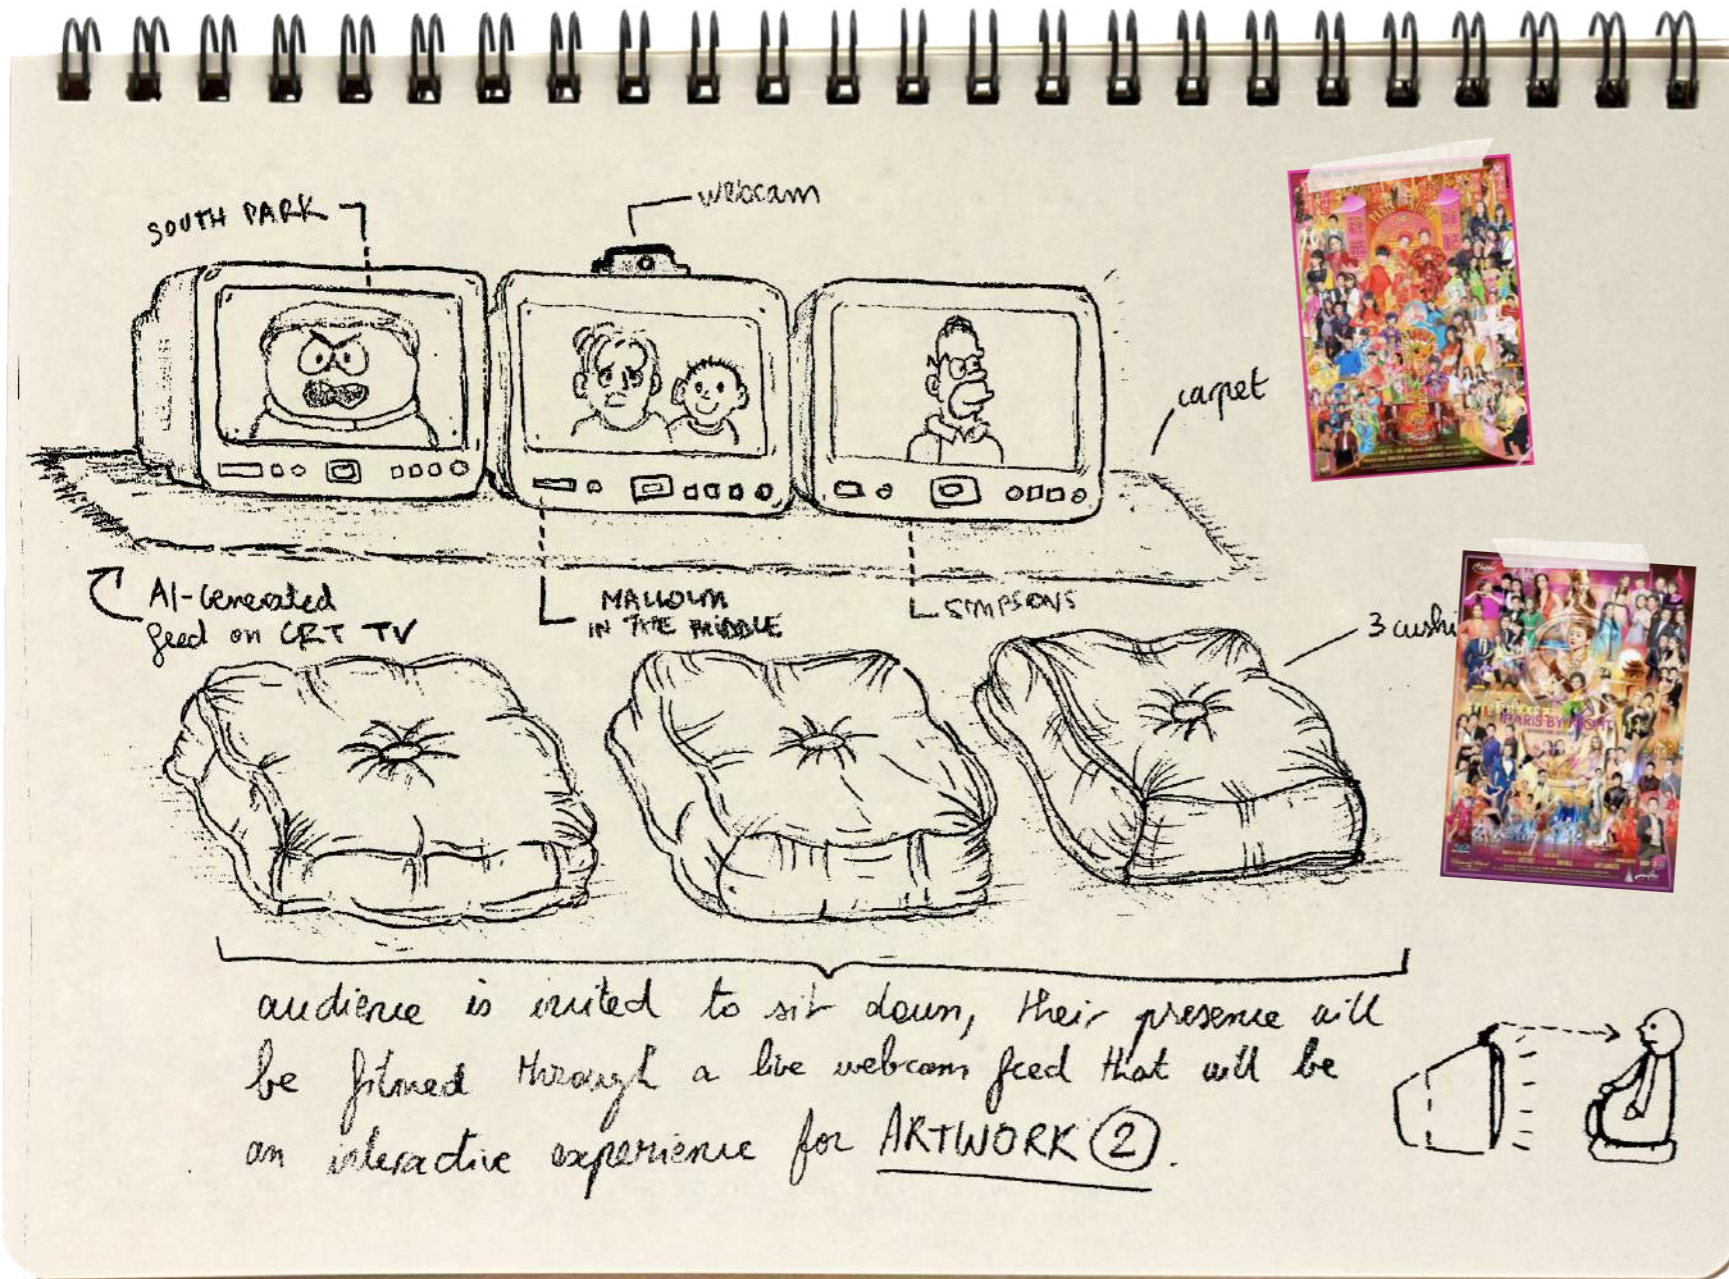 SOUTH PARK
webcam
carpet
AI-Generated
feed on CRT TV
MALCOLM
IN THE MIDDLE
SIMPSONS
3 cushi
PARIS BY NIGHT
PARIS BY NIGHT
audience is invited to sit down, their presence will
be filmed through a live webcam feed that will be
an interactive experience for ARTWORK 2.